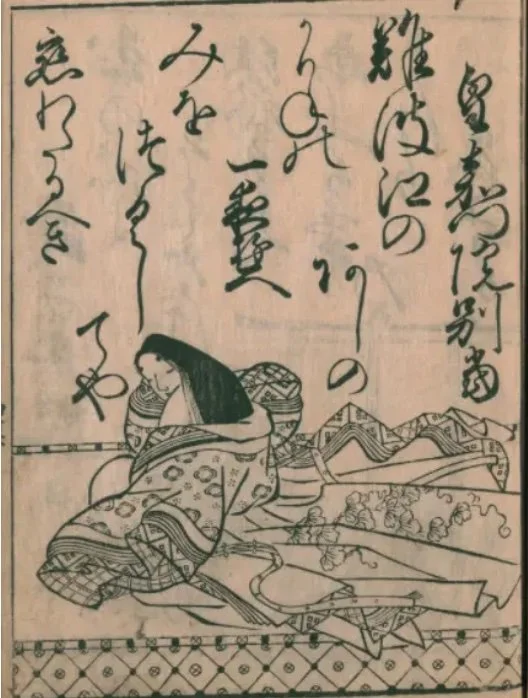 皇嘉門院別當
難波江の
あしの
かりねの
一夜ゆへ
みを
つくし
てや
恋わたるへき